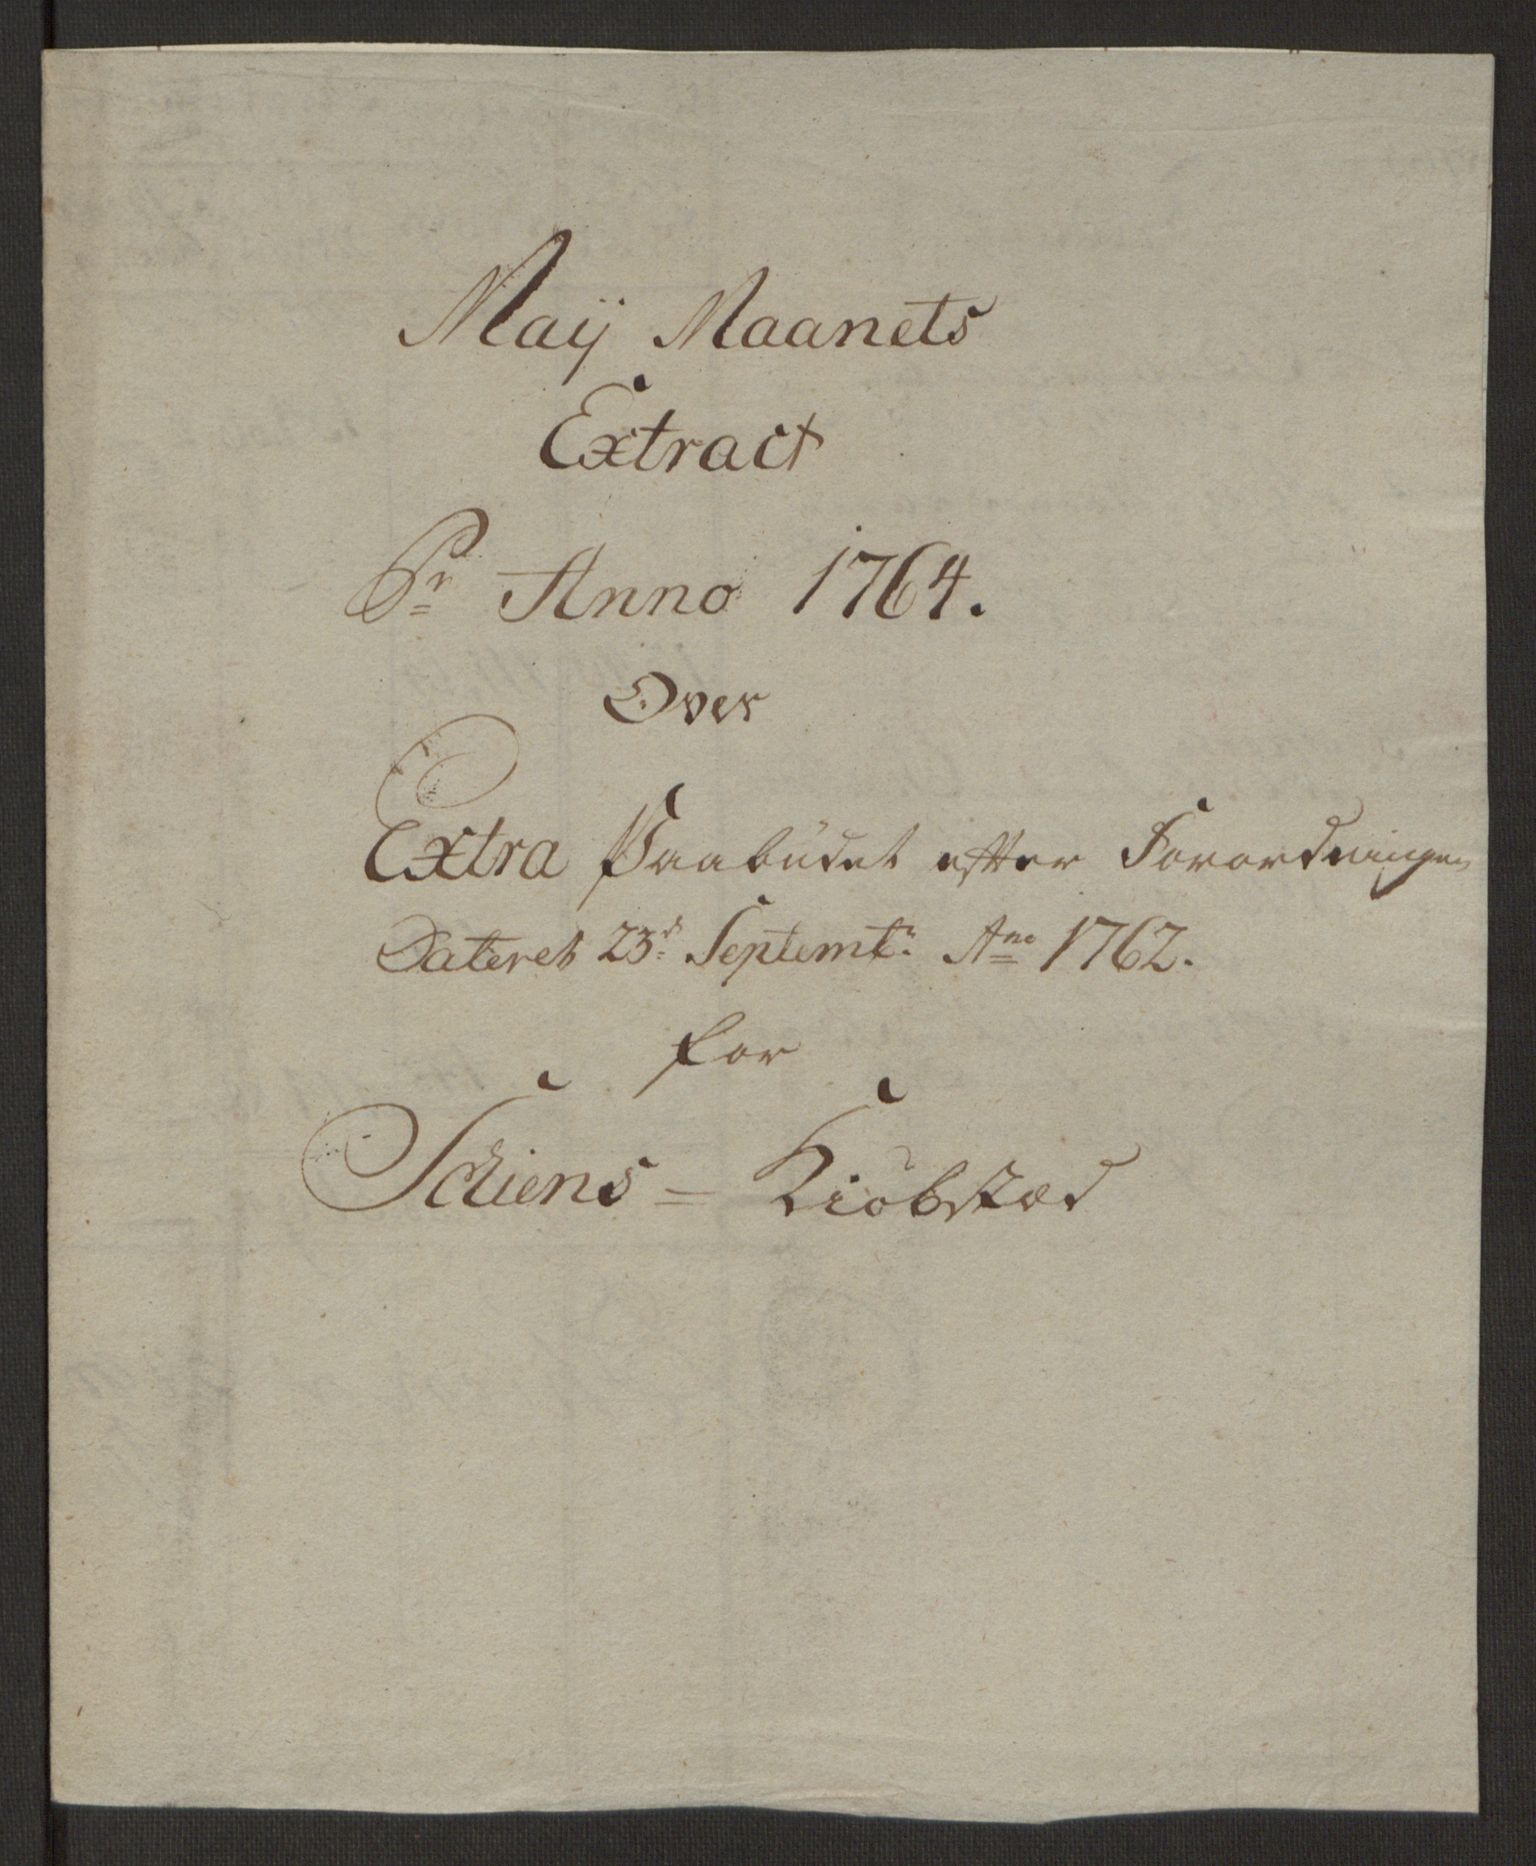 Maÿ Maanets
Extract
Pr Anno 1764.
Over
Extra Paabudet efter Forordningen
Dateret 23d Septembr: Ano 1762.
for
Schiens = Kiöbstæd